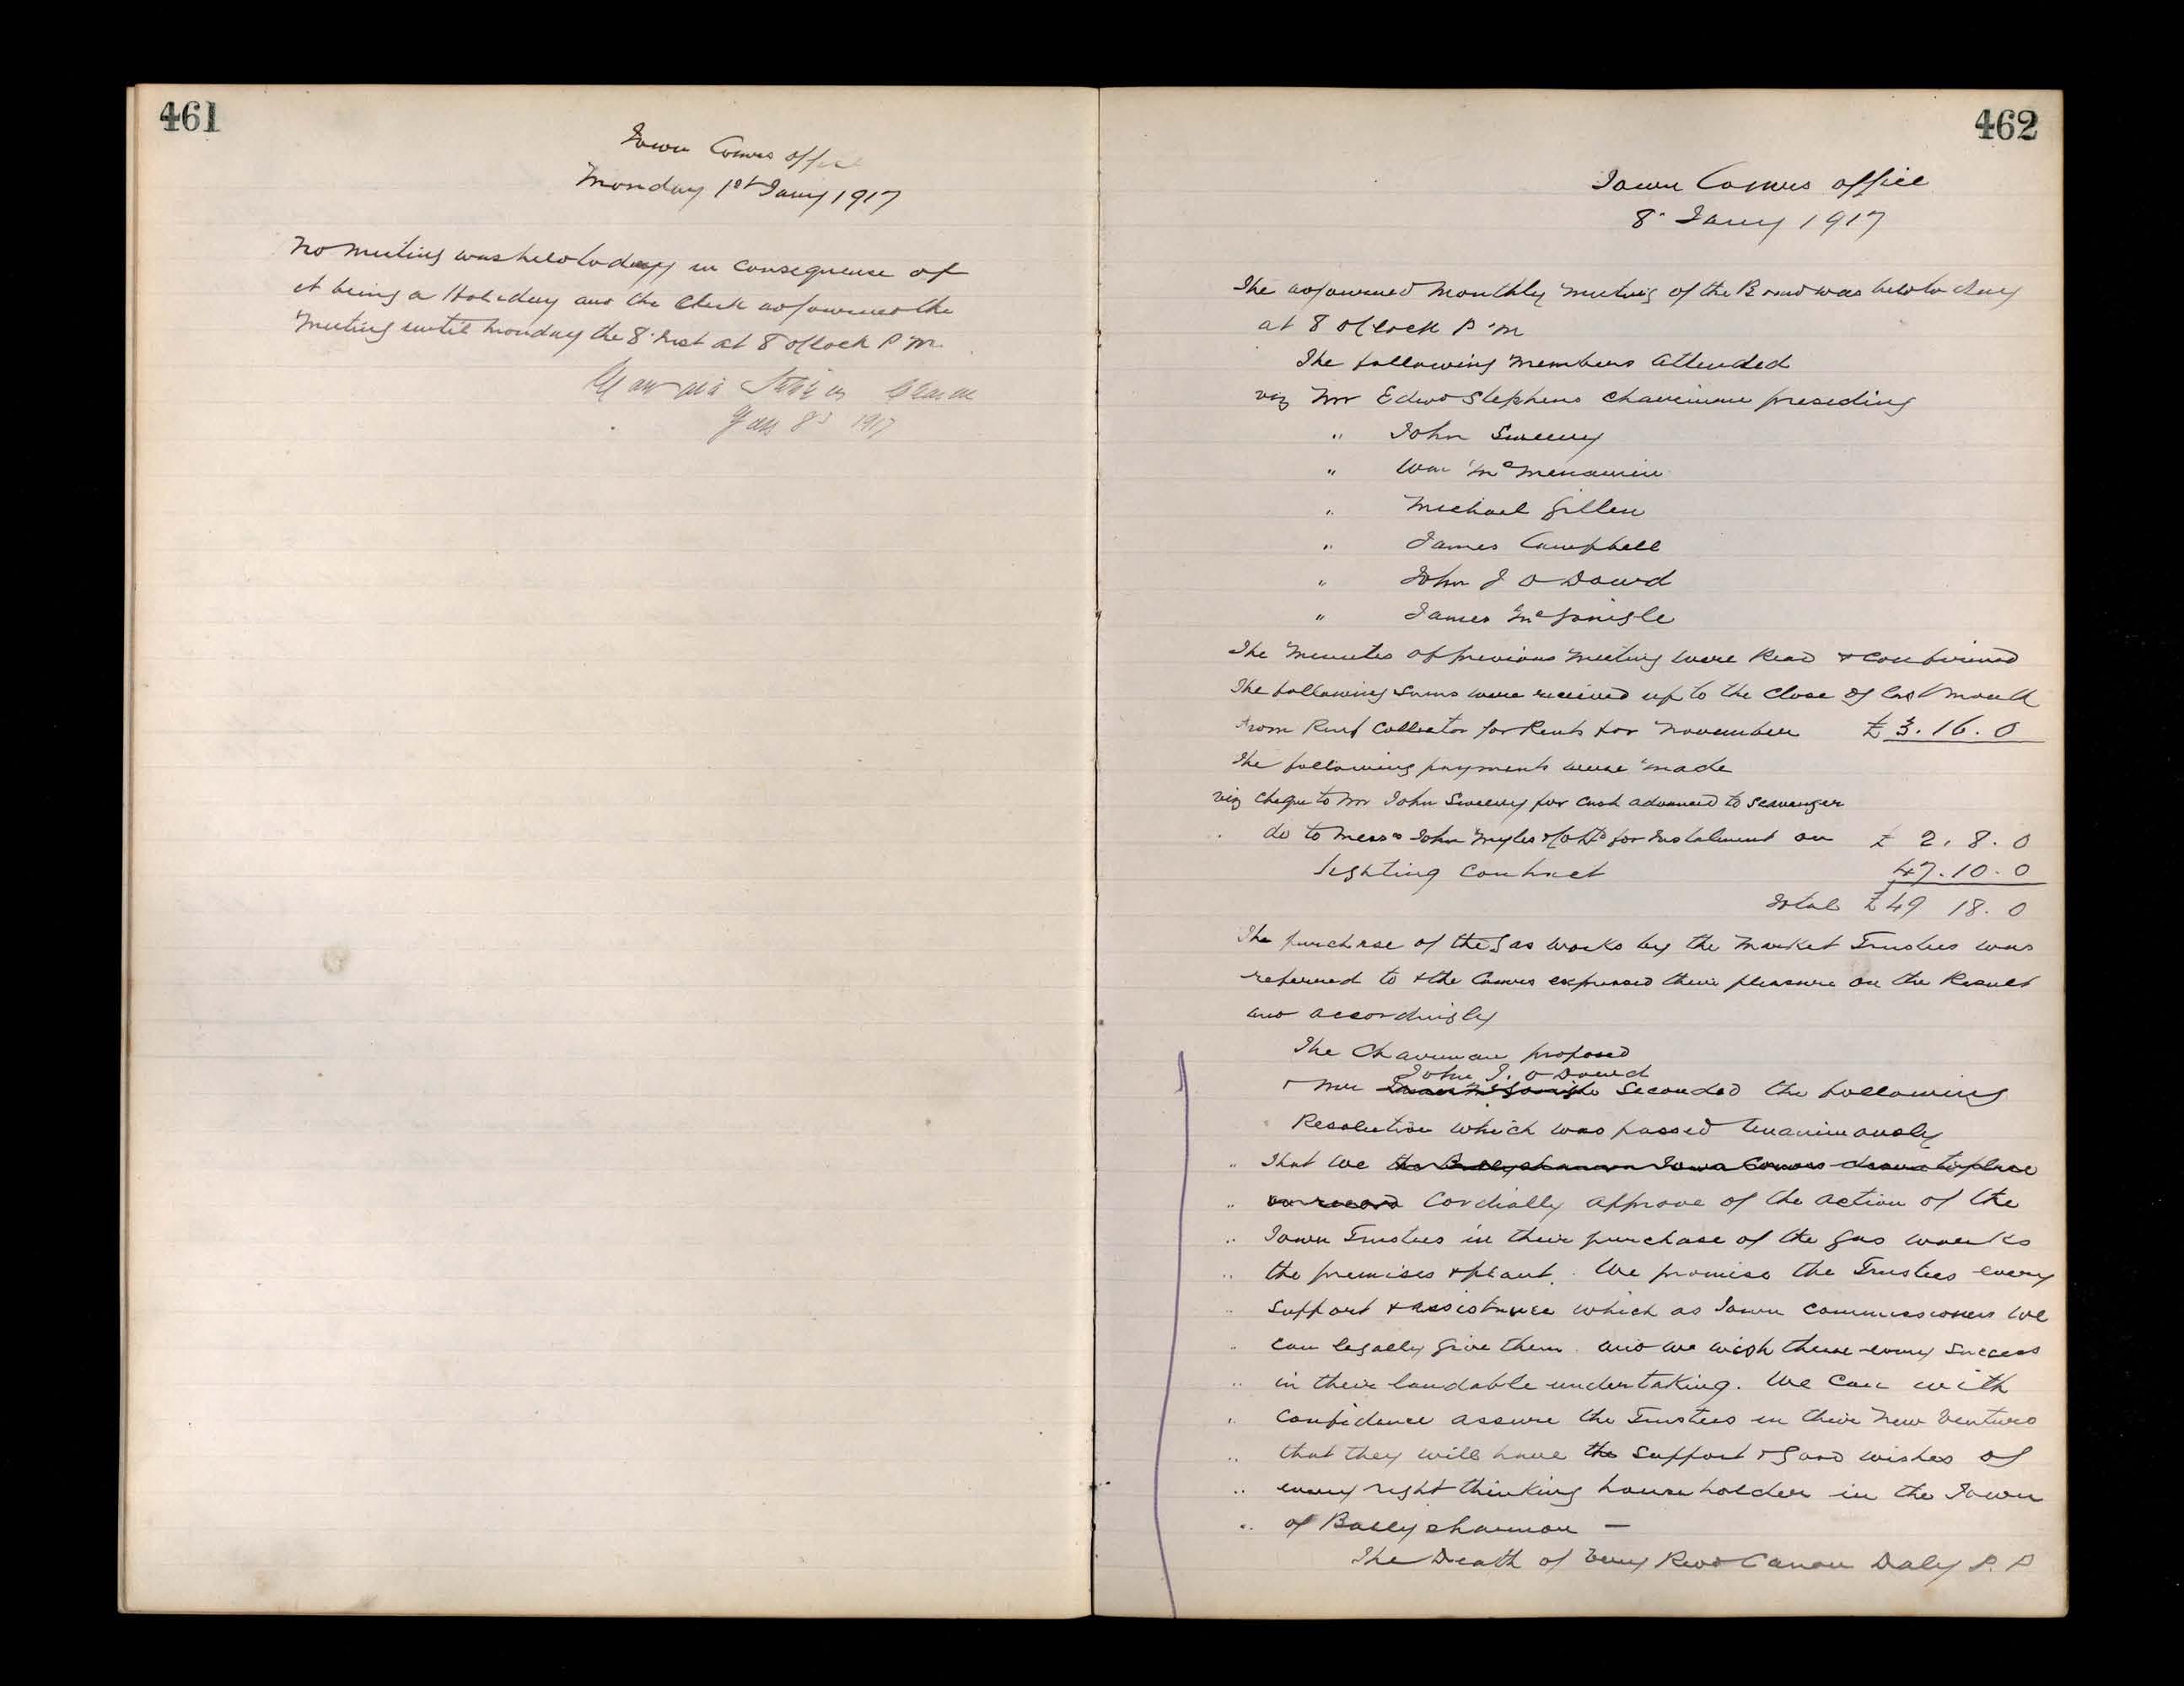 461
Town Comrs office
Monday 1st Jany 1917
No meeting was held today in consequence of
it being a Holiday and the Clerk adjourned the
Meeting until Monday the 8 inst at 8 oClock P.M.
1917
462
Town Comrs office
8 Jany 1917
The adjourned Monthly Meeting of the Board was held today
at 8 oClock P.M
The following Members attended
viz Mr Edwd Stephens Chairman presiding
" John Sweeny
" Wm McMenamin
" Michael Gillen
" James Campbell
" John J O Dowd
" James McGonigle
The Minutes of previous Meeting were Read & confirmed
The following sums were received up to the close of last month
From Rent Collector for Rents for November £3.16.0
The following payments were made
viz cheque to Mr John Sweeny for cash advanced to scavenger
do to Messrs John Myles & Co Ltd for Instalment on £ 2.8.0
lighting contract 47.10.0
Total £49 18.0
The purchase of the Gas Works by the Market Trustees was
referred to & the Comrs expressed their pleasure on the Result
and accordingly
The Chairman proposed
John J. O Dowd
& Mr James McGonigle Seconded the following
Resolution which was passed Unanimously
" That we the Ballyshannon Town Comrs desire to place
" on record Cordially approve of the action of the
" Town Trustees in their purchase of the Gas Works
" the premises & plant. We promise the Trustees every
" support & assistance which as Town Commissioners we
" can legally give them and we wish them every success
" in their laudable undertaking. We can with
" confidence assure the Trustees in their New Venture
" that they will have the support & good wishes of
" every right thinking house holder in the Town
" of Ballyshannon —
The Death of Very Revd Canon Daly P.P